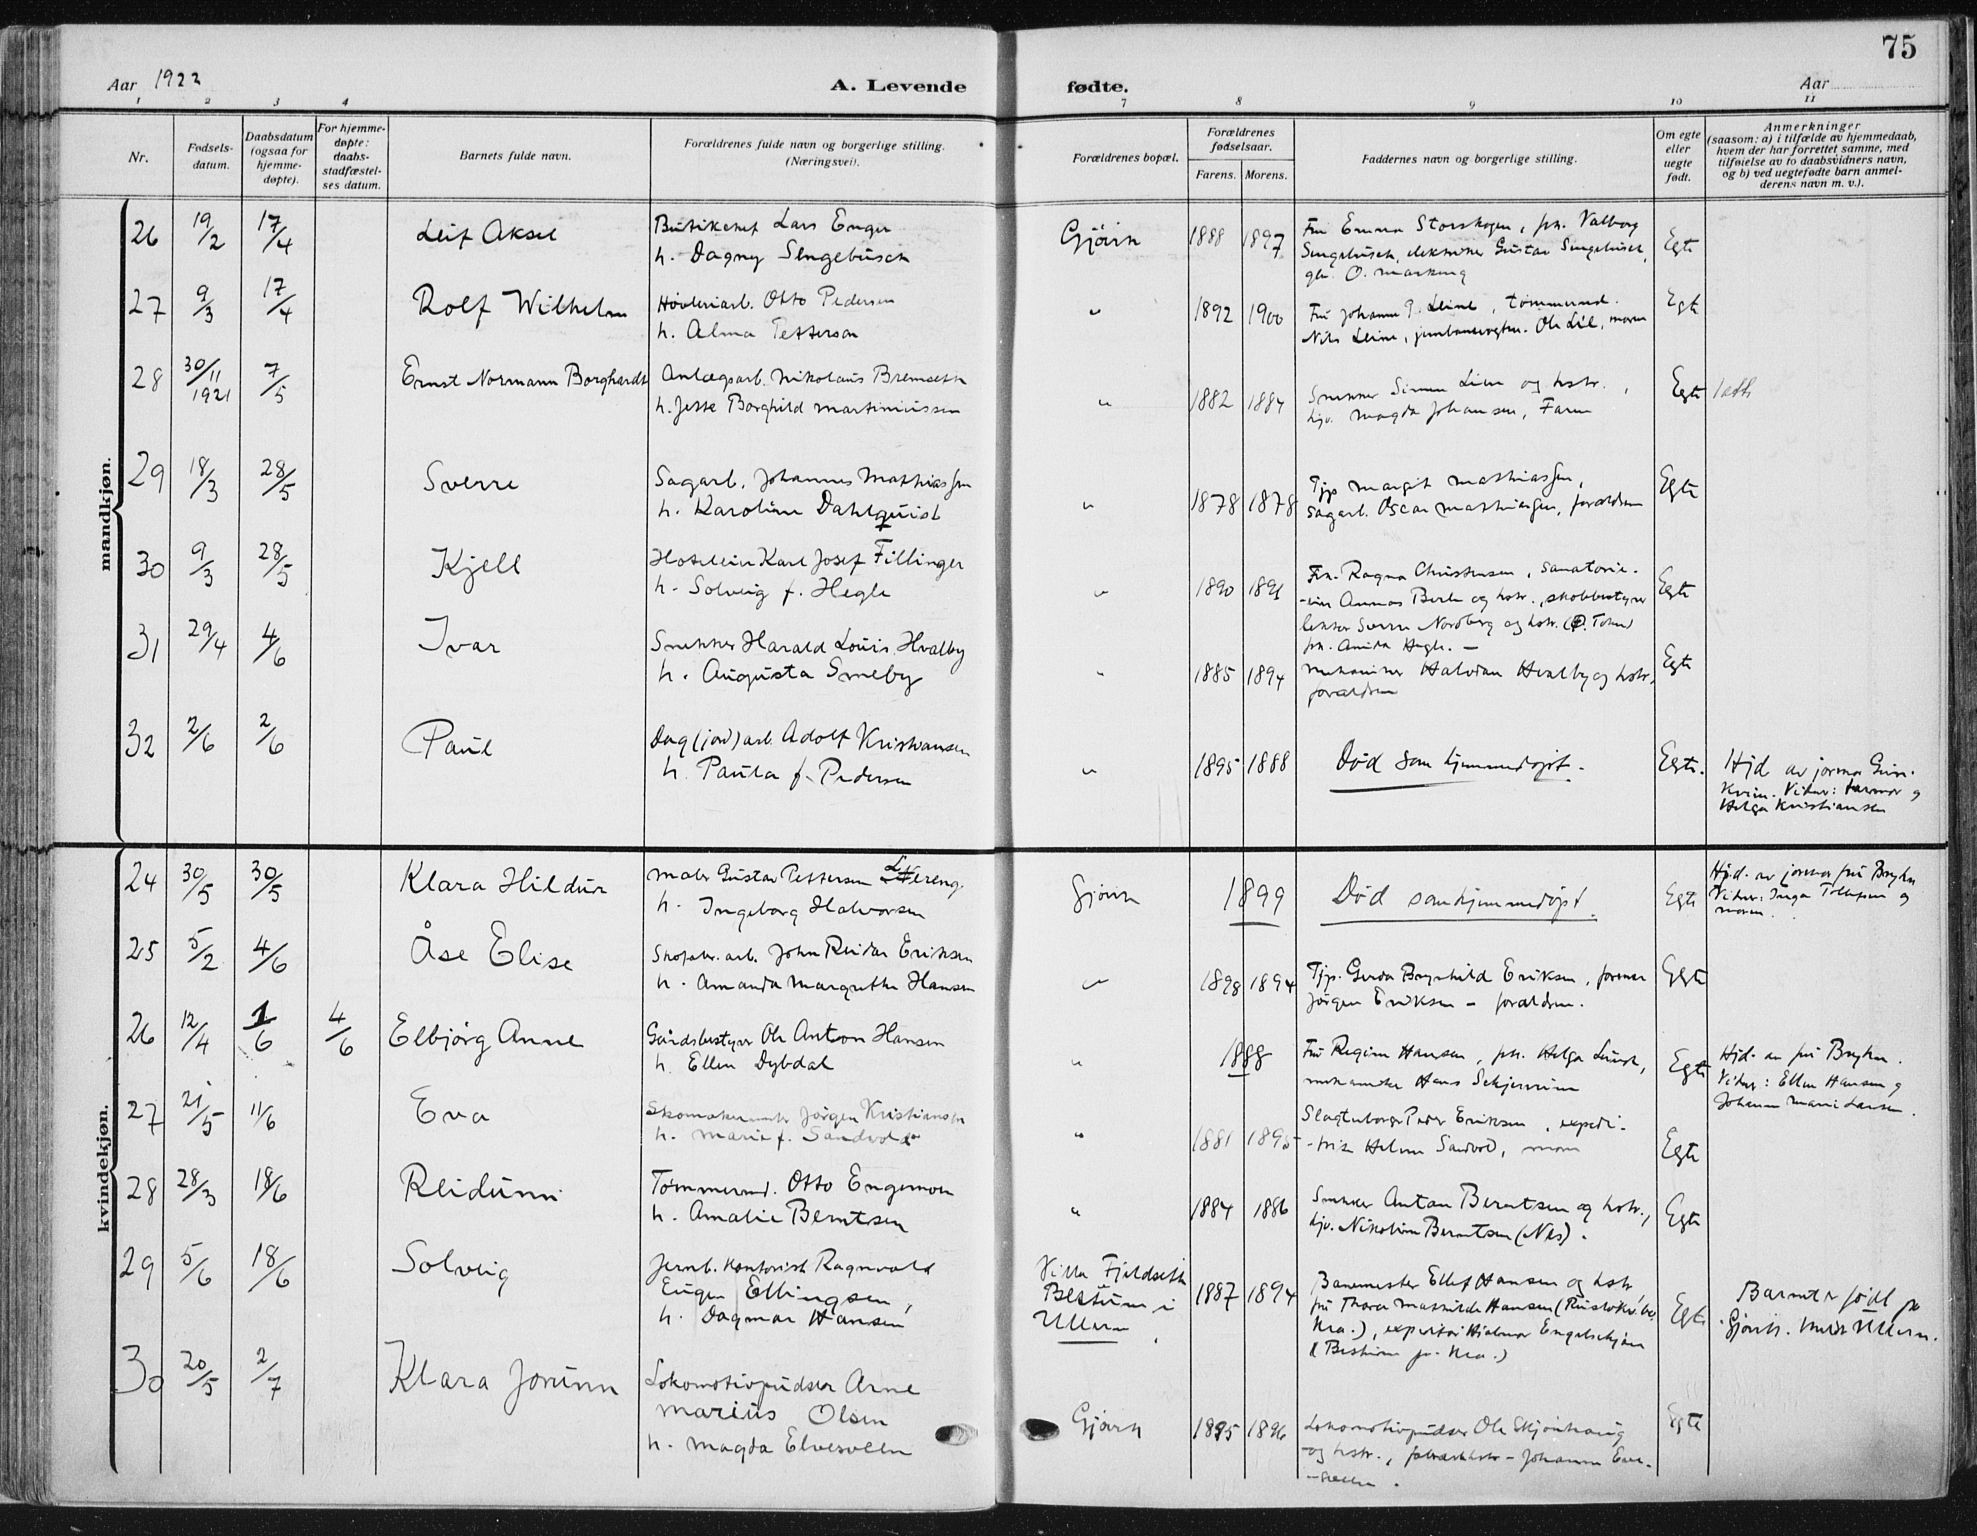 75
Aar 1922
A. Levende fødte.
Aar
1 2 3 4 7 8 9 10 11
Nr.
Fødsels-
datum.
Daabsdatum
(ogsaa for
hjemme-
døpte).
For hjemme-
døpte:
daabs-
stadfæstel-
ses datum.
Barnets fulde navn.
Forældrenes fulde navn og borgerlige stilling.
(Næringsvei).
Forældrenes bopæl.
Forældrenes
fødselsaar.
Farens. Morens.
Faddernes navn og borgerlige stilling.
Om egte
eller
uegte
født.
Anmerkninger
(saasom: a) i tilfælde av hjemmedaab,
hvem der har forrettet samme, med
tilføielse av to daabsvidners navn,
og b) ved uegtefødte barn anmel-
derens navn m. v.).
mandkjøn.
26 19/2 17/4 Leif Aksel
Lars Enger
h. Dagny Sengebusch
Gjøvik 1888 1897
Fru Emma Storskogen, frk. Valborg
Sengebusch, elektriker Gustav Sengebusch,
Egte
27 9/3 17/4 Rolf Wilhelm
Høvleriarb. Otto Pedersen
h. Alma Petterson
" 1892 1900
Fru Johanne Leine, tømmermd.
Nils Leine, Ole Lie, moren
Egte
28 30/11 1921 7/5 Ernst Normann Borghardt
Anlægsarb. Nikolaus Bremseth
h. Jette Borghild Martiniussen
" 1882 1884
Snekker Simen Lien og hstr.,
Magda Johansen, Faren
Egte
29 18/3 28/5 Sverre
Sagarb. Johannes Mathiassen
h. Karoline Dahlquist
" 1878 1878
Tjp Margit Mathiassen,
sagarb. Oscar Mathiassen, forældren
Egte
30 9/3 28/5 Kjell
Hoteleier Karl Josef Fillinger
h. Solveig f. Hegle
" 1890 1891
Frk. Ragna Christensen, sanatorie-
og hstr., skobestyrer
lektor Sverre Nordberg og hstr.
Egte
31 29/4 4/6 Ivar
Snekker Harald Louis Hvalby
h. Augusta Smeby
" 1885 1894
mekaniker Halvdan Hvalby og hstr.,
forældren
Egte
32 2/6 2/6 Paul
Dag(jord)arb. Adolf Kristiansen
h. Paula f. Pedersen
" 1895 1888
Død som hjemmedøpt.
Egte.
Hjd av jormor
Vidner: farmor og
Helga Kristiansen
kvindekjøn.
24 30/5 30/5 Klara Hildur
Maler Gustav Pettersen
h. Ingeborg Halvorsen
Gjøvik 1899
Død som hjemmedøpt.
Egte
Hjd. av jormor fru Bryhn
Vidner: Inga Tollefsen og
moren.
25 5/2 4/6 Åse Elise
Skofabr. arb. John Reidar Eriksen
h. Amanda Margrethe Hansen
" 1898 1894
Tjp. Gerda Brynhild Eriksen, former
Jørgen Eriksen - forældren.
Egte
26 12/4 1/6 4/6 Elbjørg Anne
Gårdsbestyrer Ole Anton Hansen
h. Ellen Dybdal
" 1888
Fru Regine Hansen, frk. Helga Lund,
Hans
Egte
Hjd. av fru Bryhn.
Vidner: Ellen Hansen og
Johanne Marie Larsen.
27 21/5 11/6 Eva
Jørgen Kristiansen
h. Marie f. Sandvold
" 1881 1895
Peder Eriksen, expedi-
trise Helene Sandvold, moren
Egte
28 28/3 18/6 Reidunn
Tømmermd. Otto Engemoen
h. Amalie Berntsen
" 1884 1886
Snekker Anton Berntsen og hstr.,
Nikoline Berntsen (Nes).
Egte
29 5/6 18/6 Solveig
Jernb. kontorist Ragnvald
Eugen Ellingsen,
h. Dagmar Hansen
Villa Fjeldseth
Bestum i
Ullern
1887 1894
Banemester Ellef Hansen og hstr
fru Thora Mathilde Hansen
Kra.), Hjalmar
(Bestum pr. Kra.)
Egte
Barnet er født på
Gjøvik. Meldt Ullern.
30 20/5 2/7 Klara Jorunn
Lokomotivpudser Arne
Marius Olsen
h. Magda Elvesveen
Gjøvik 1895 1896
Lokomotivpudser Ole Skjønhaug
og hstr., Johanne Elve-
Egte